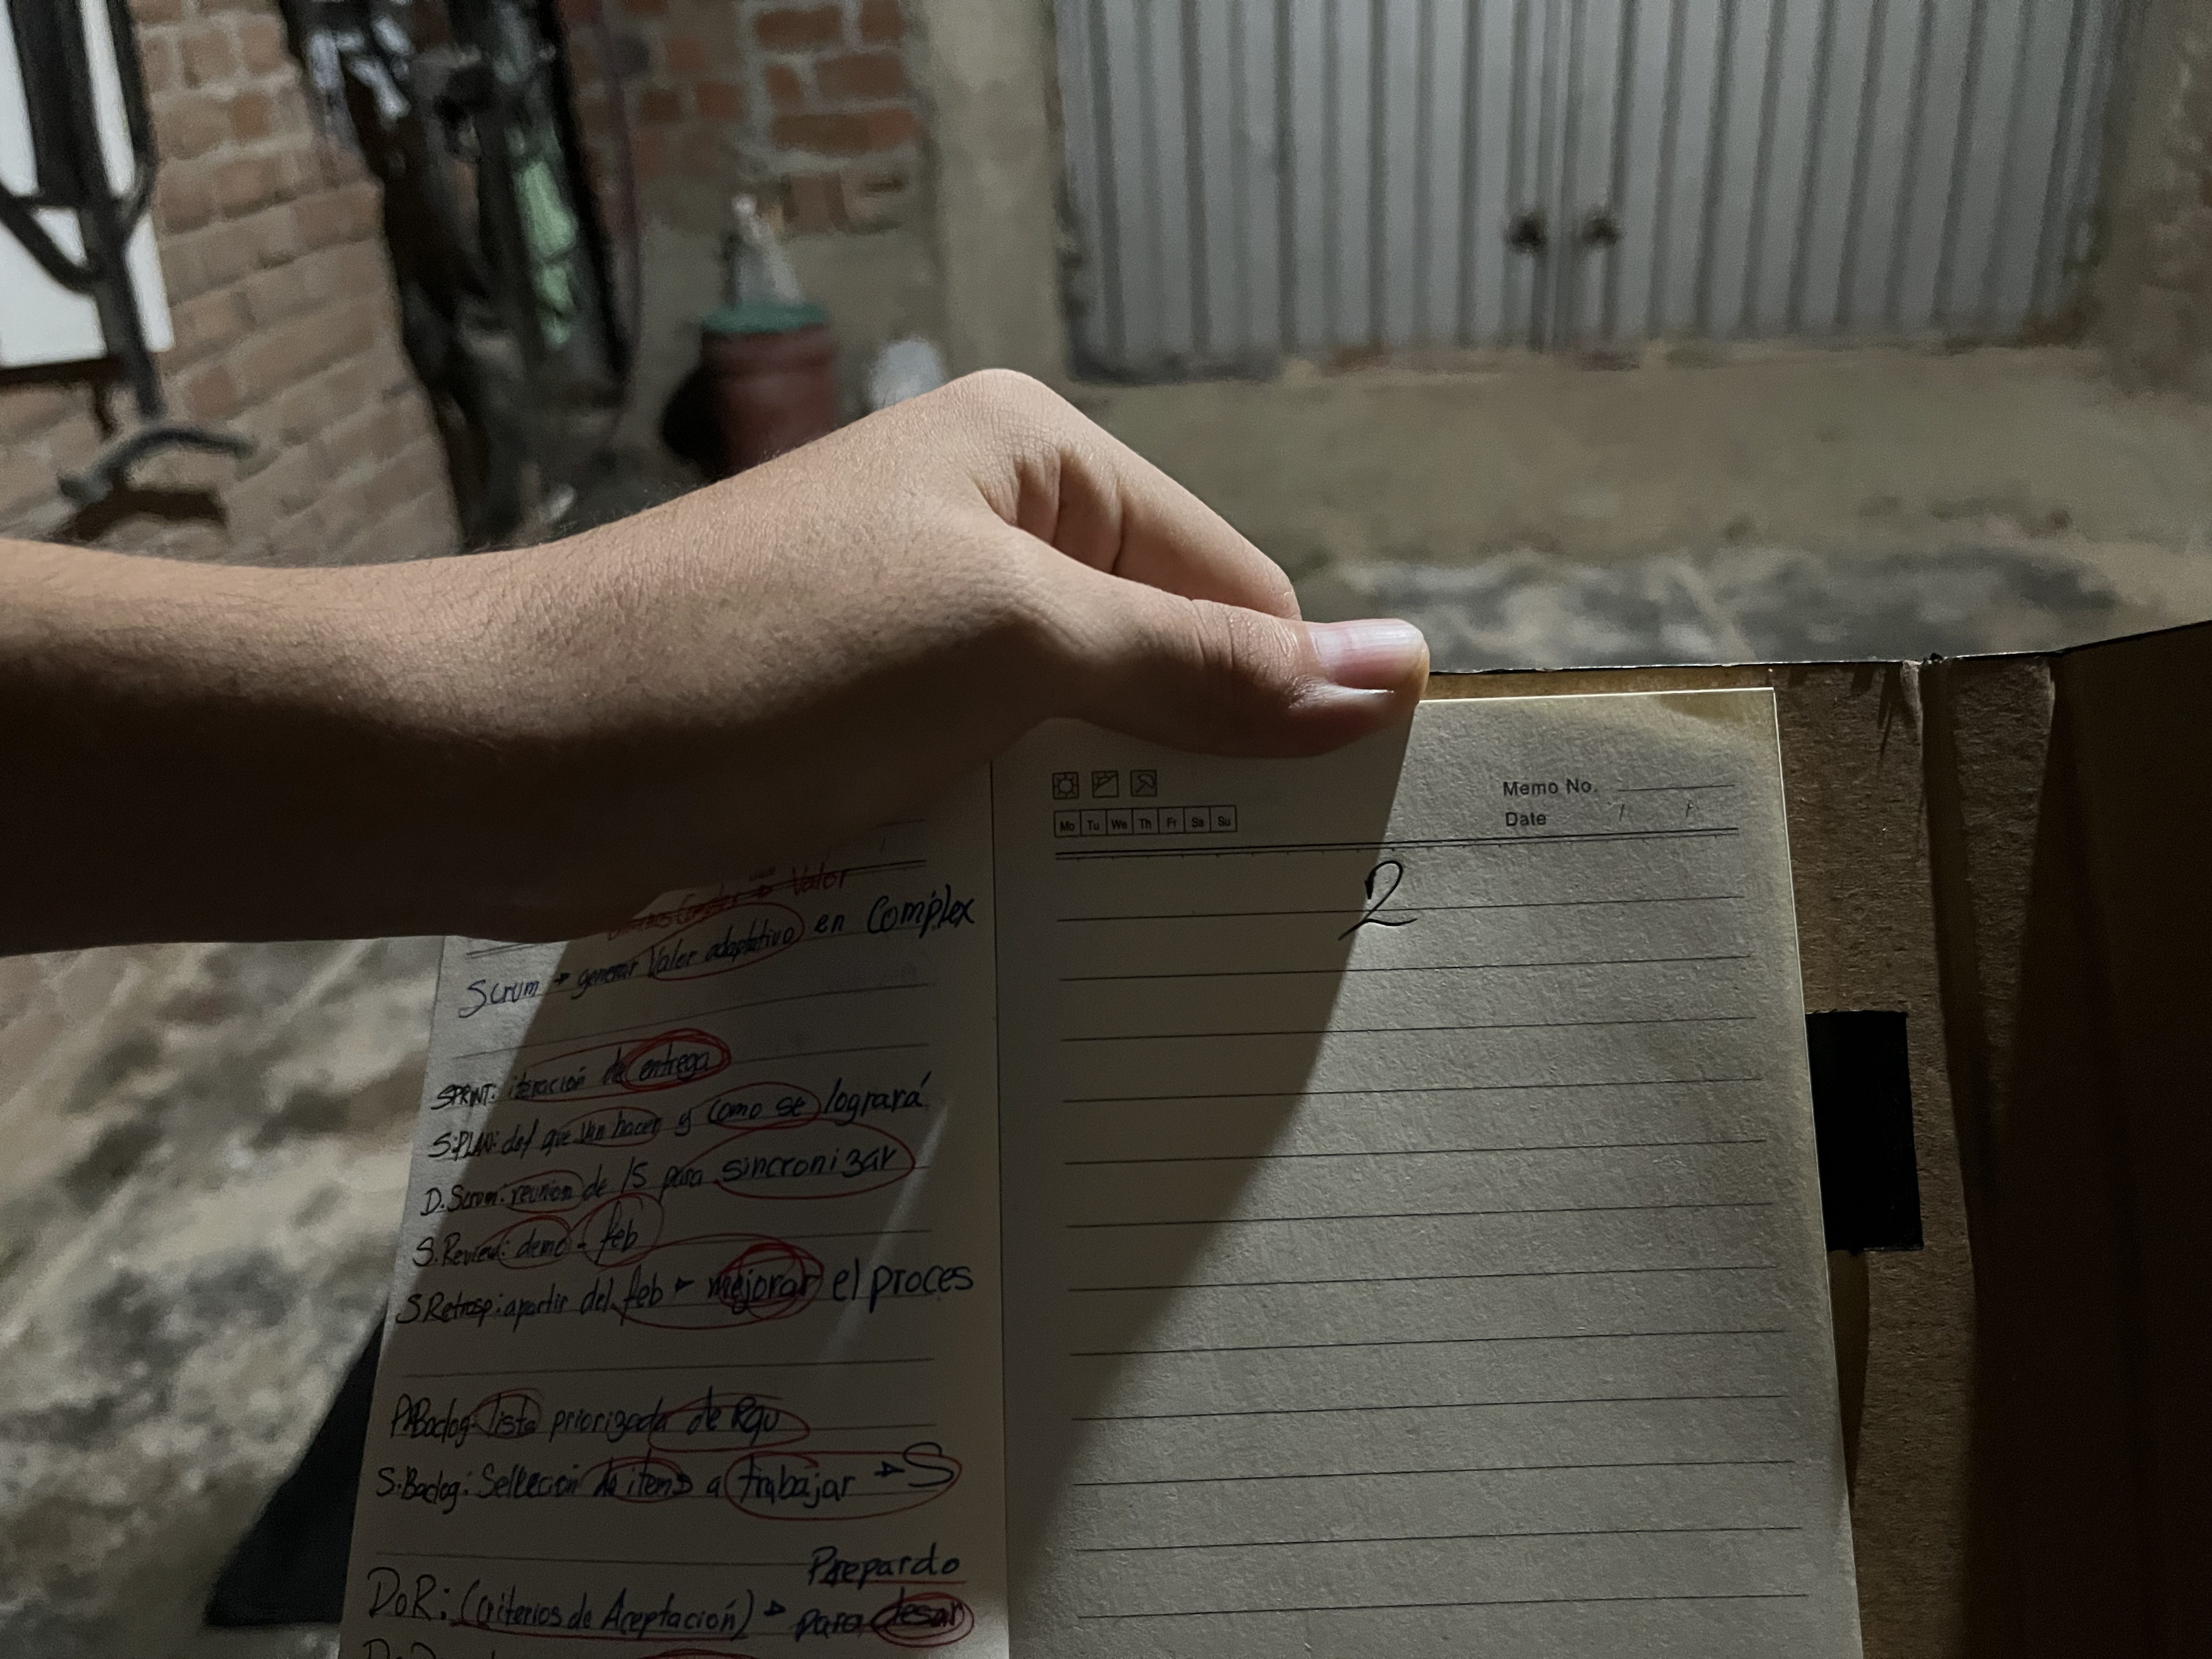 Valor
Scrum → generar Valor adaptativo en Complex
SPRINT: iteración de entrega
S.PLAN: def que van hacer y como se logrará
D.Scrum: reunion de 15 para sincronizar
S.Review: demo - feb
S.Retrosp: apartir del feb → mejorar el proces
P.Baclog: lista priorizada de Rqu
S.Baclog: Selleción de items a trabajar → S
Prepardo
DoR: (criterios de Aceptación) → para desar
Memo No.
Mo Tu We Th Fr Sa Su
Date / /
2